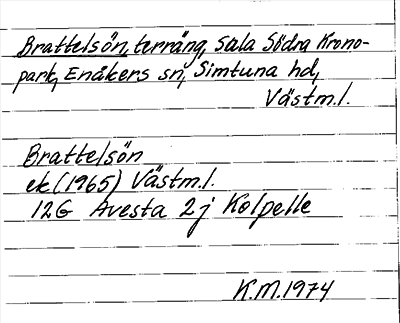 Brattelsön, terräng, Sala Södra Krono-
park, Enåkers sn, Simtuna hd,
Västm.l.
Brattelsön
ek (1965) Västm.l.
12G Avesta 2j Kolpelle
K.M. 1974